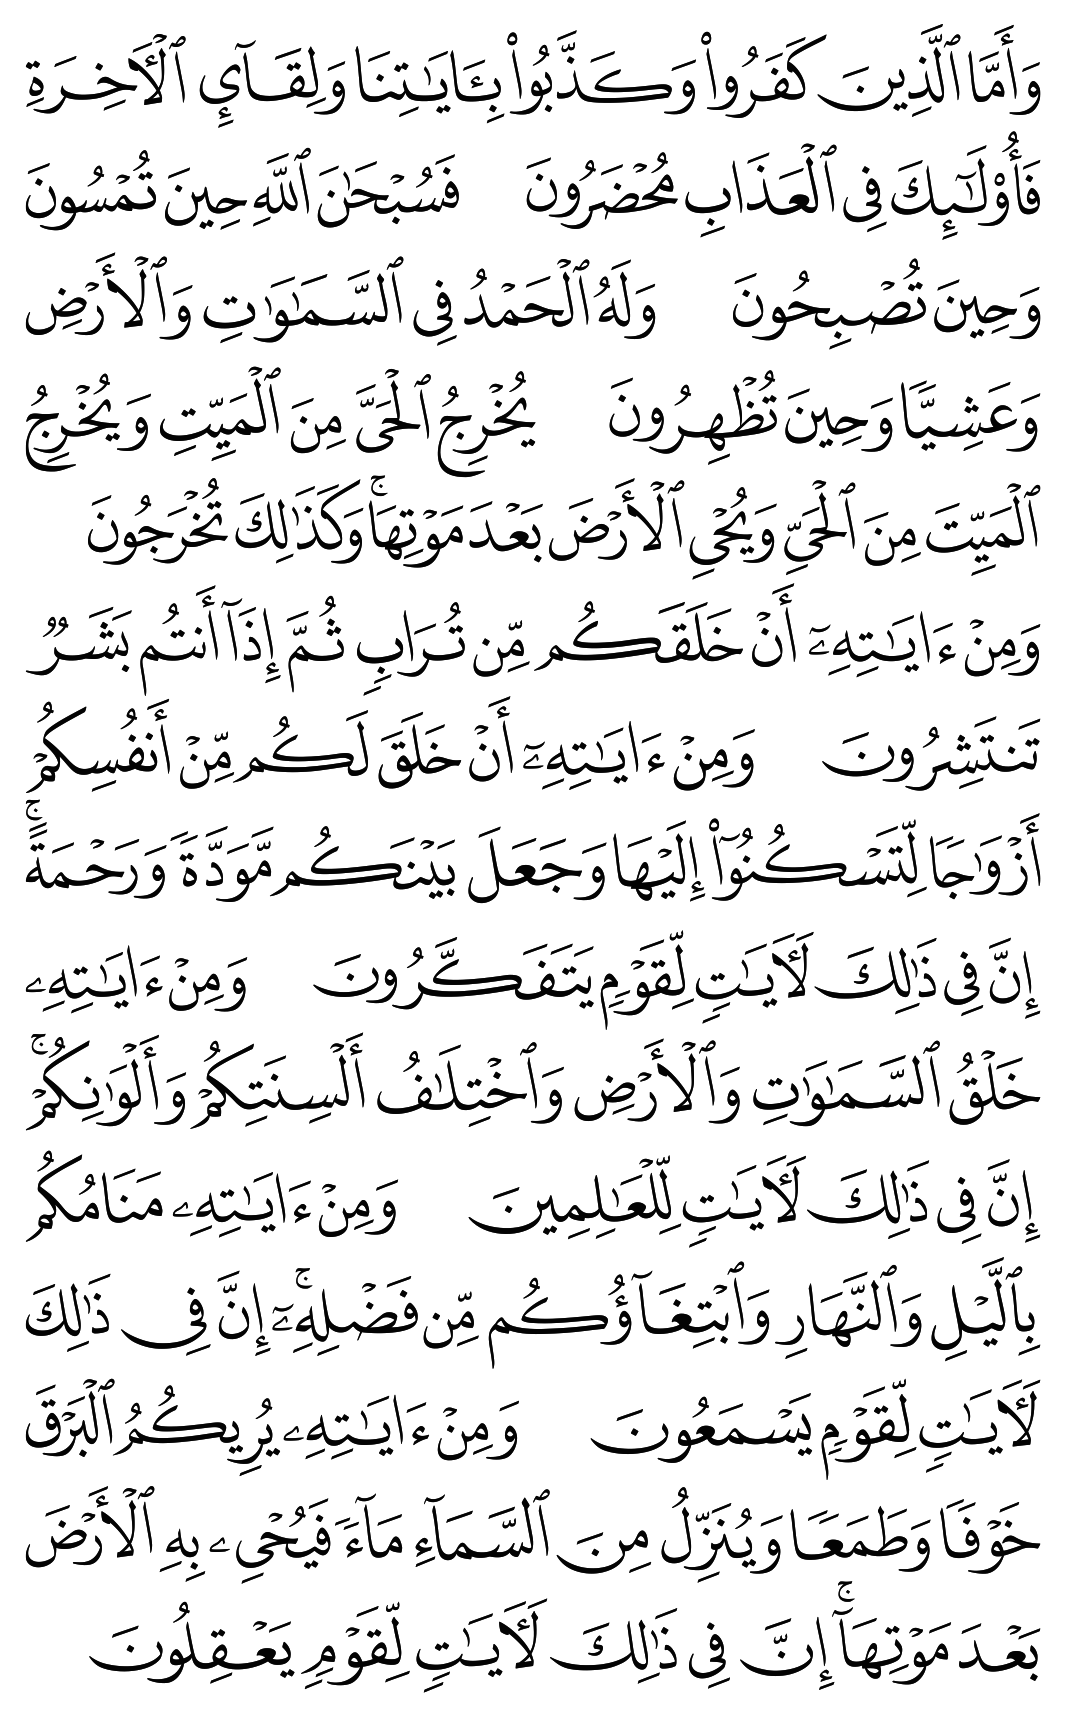 وَأَمَّا ٱلَّذِينَ كَفَرُواْ وَكَذَّبُواْ بِـَٔايَٰتِنَا وَلِقَآيِٕ ٱلۡأٓخِرَةِ
فَأُوْلَٰٓئِكَ فِي ٱلۡعَذَابِ مُحۡضَرُونَ فَسُبۡحَٰنَ ٱللَّهِ حِينَ تُمۡسُونَ
وَحِينَ تُصۡبِحُونَ وَلَهُ ٱلۡحَمۡدُ فِي ٱلسَّمَٰوَٰتِ وَٱلۡأَرۡضِ
وَعَشِيّٗا وَحِينَ تُظۡهِرُونَ يُخۡرِجُ ٱلۡحَيَّ مِنَ ٱلۡمَيِّتِ وَيُخۡرِجُ
ٱلۡمَيِّتَ مِنَ ٱلۡحَيِّ وَيُحۡيِ ٱلۡأَرۡضَ بَعۡدَ مَوۡتِهَاۚ وَكَذَٰلِكَ تُخۡرَجُونَ
وَمِنۡ ءَايَٰتِهِۦٓ أَنۡ خَلَقَكُم مِّن تُرَابٖ ثُمَّ إِذَآ أَنتُم بَشَرٞ
تَنتَشِرُونَ وَمِنۡ ءَايَٰتِهِۦٓ أَنۡ خَلَقَ لَكُم مِّنۡ أَنفُسِكُمۡ
أَزۡوَٰجٗا لِّتَسۡكُنُوٓاْ إِلَيۡهَا وَجَعَلَ بَيۡنَكُم مَّوَدَّةٗ وَرَحۡمَةًۚ
إِنَّ فِي ذَٰلِكَ لَأٓيَٰتٖ لِّقَوۡمٖ يَتَفَكَّرُونَ وَمِنۡ ءَايَٰتِهِۦ
خَلۡقُ ٱلسَّمَٰوَٰتِ وَٱلۡأَرۡضِ وَٱخۡتِلَٰفُ أَلۡسِنَتِكُمۡ وَأَلۡوَٰنِكُمۡۚ
إِنَّ فِي ذَٰلِكَ لَأٓيَٰتٖ لِّلۡعَٰلِمِينَ وَمِنۡ ءَايَٰتِهِۦ مَنَامُكُم
بِٱلَّيۡلِ وَٱلنَّهَارِ وَٱبۡتِغَآؤُكُم مِّن فَضۡلِهِۦٓۚ إِنَّ فِي ذَٰلِكَ
لَأٓيَٰتٖ لِّقَوۡمٖ يَسۡمَعُونَ وَمِنۡ ءَايَٰتِهِۦ يُرِيكُمُ ٱلۡبَرۡقَ
خَوۡفٗا وَطَمَعٗا وَيُنَزِّلُ مِنَ ٱلسَّمَآءِ مَآءٗ فَيُحۡيِۦ بِهِ ٱلۡأَرۡضَ
بَعۡدَ مَوۡتِهَآۚ إِنَّ فِي ذَٰلِكَ لَأٓيَٰتٖ لِّقَوۡمٖ يَعۡقِلُونَ